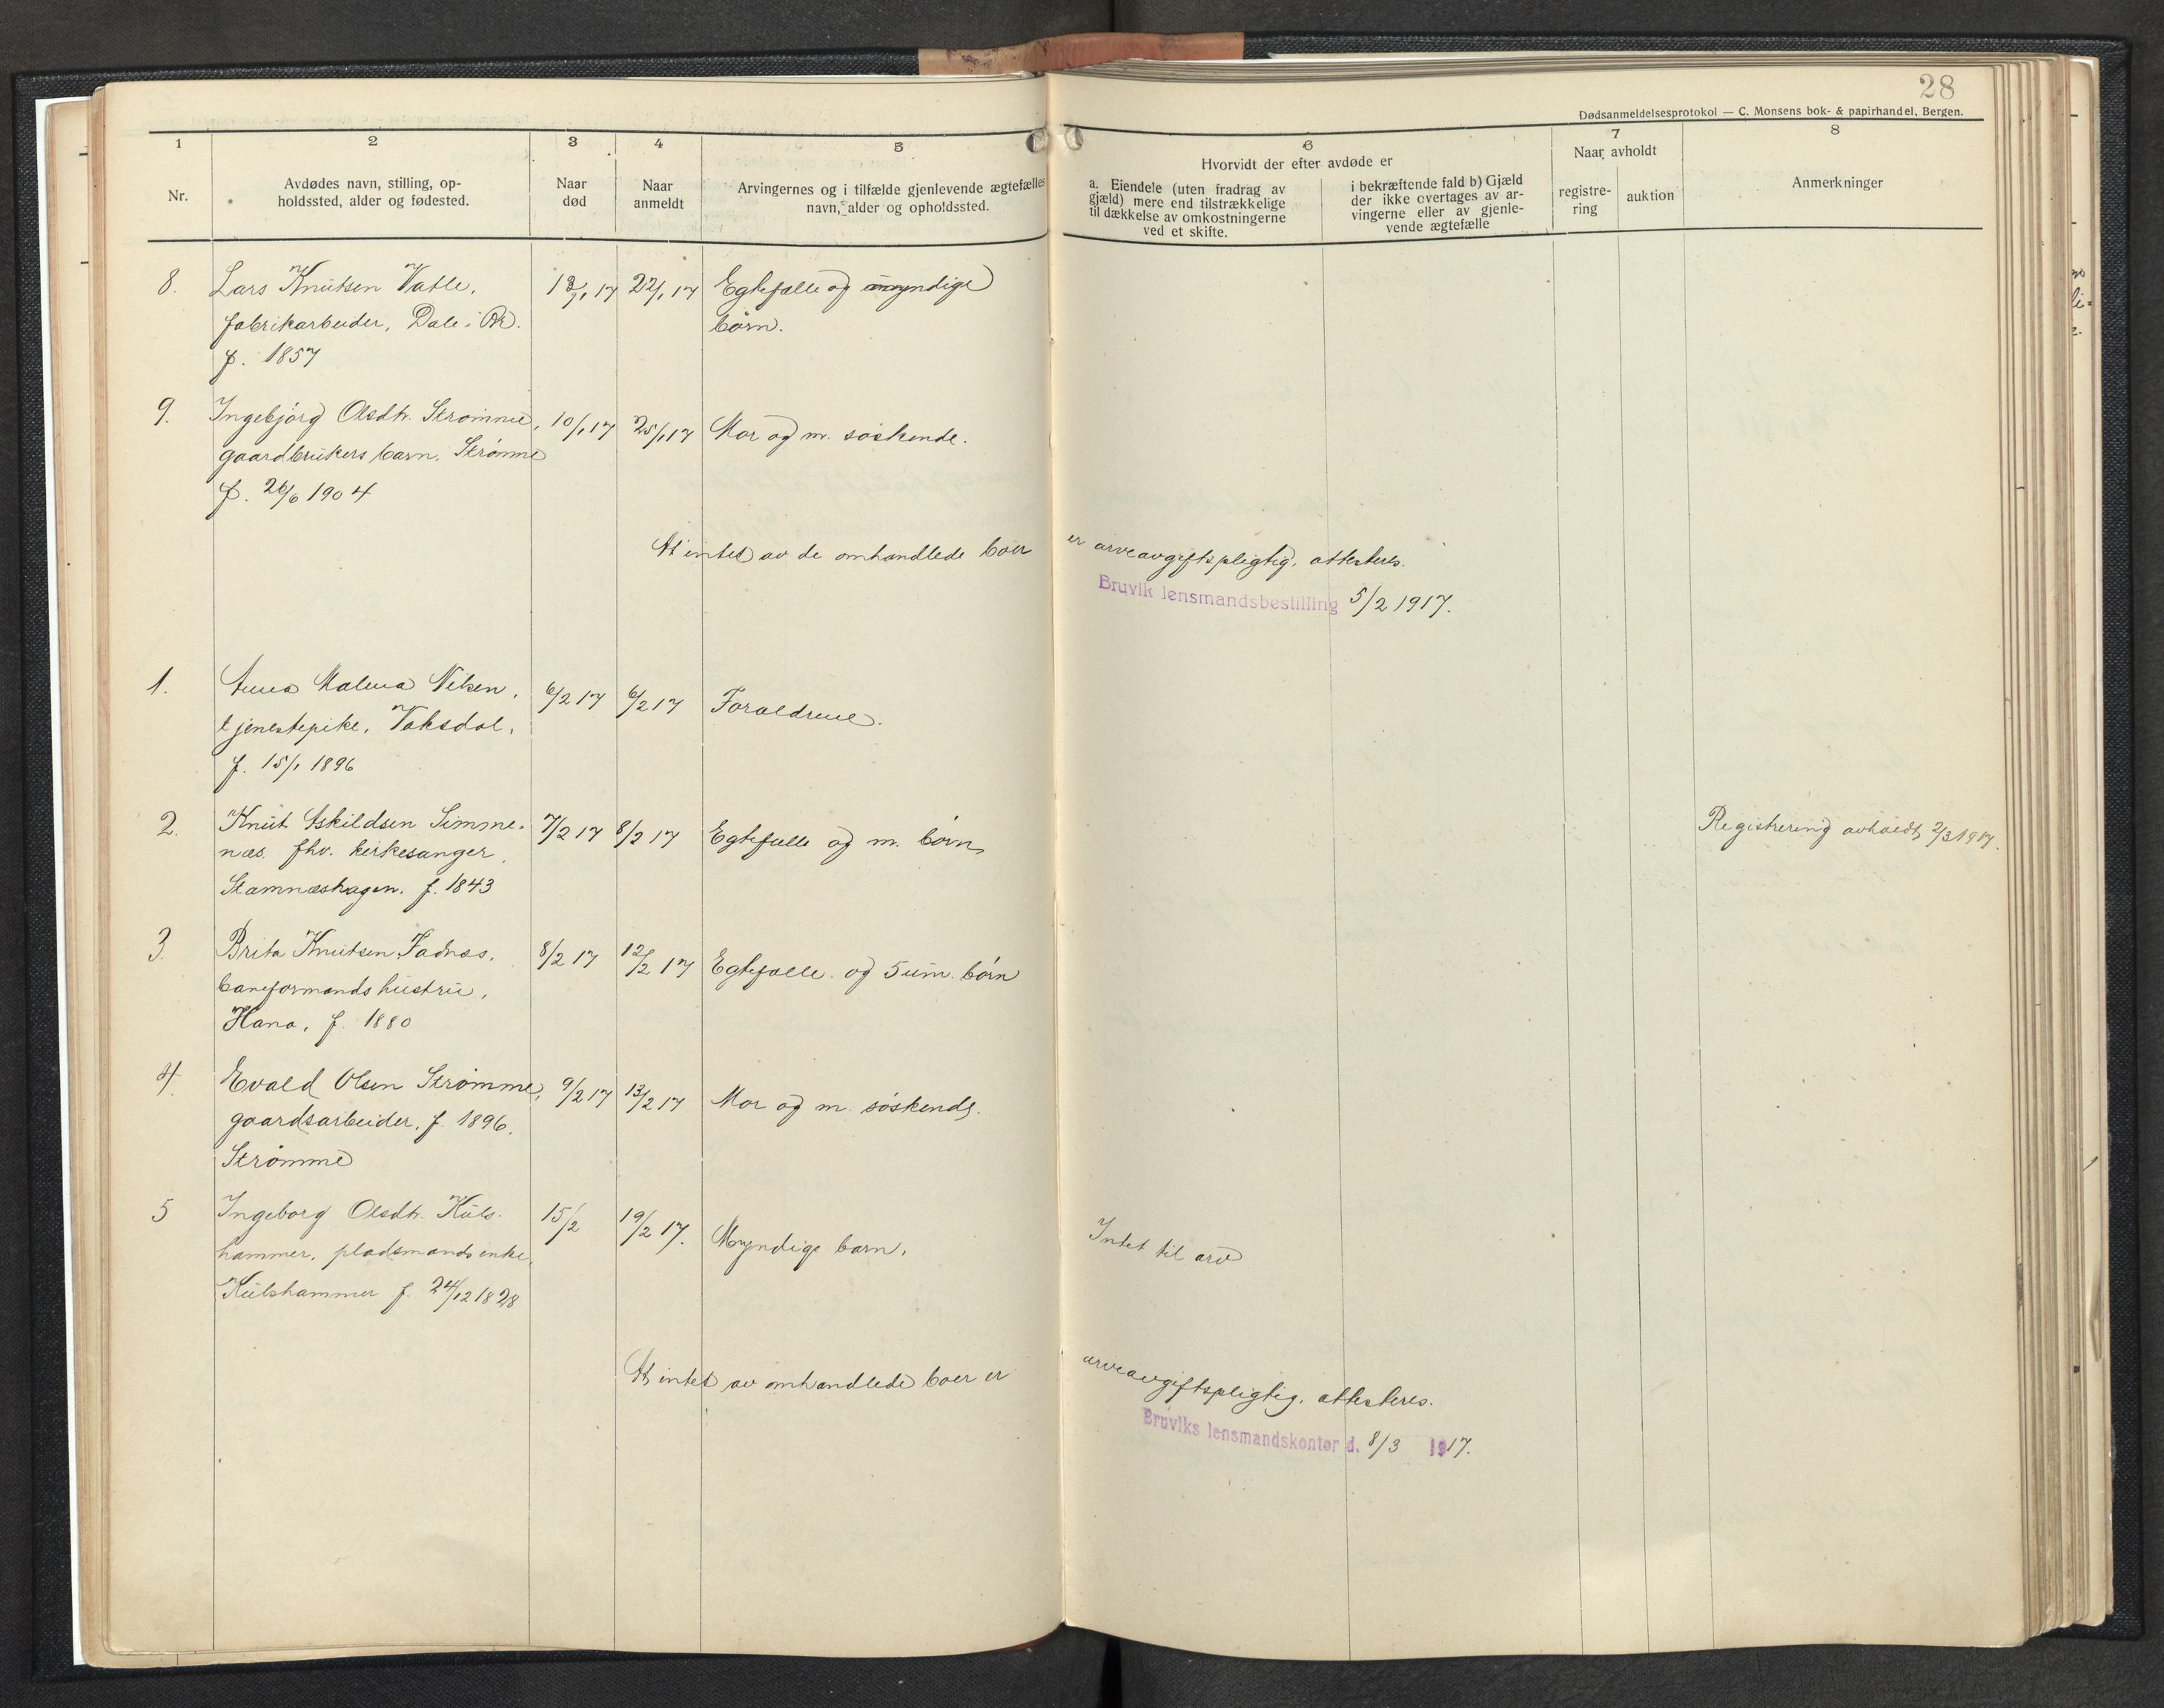 28
Dødsanmeldelsesprotokol — C. Monsens bok- & papirhandel, Bergen.
1 2 3 4 5 6 7 8
Nr.
Avdødes navn, stilling, op-
holdssted, alder og fødested.
Naar
død
Naar
anmeldt
Arvingernes og i tilfælde gjenlevende ægtefælles
navn, alder og opholdssted.
Hvorvidt der efter avdøde er
a. Eiendele (uten fradrag av
gjæld) mere end tilstrækkelige
til dækkelse av omkostningerne
ved et skifte.
i bekræftende fald b) Gjæld
der ikke overtages av ar-
vingerne eller av gjenle-
vende ægtefælle
Naar avholdt
registre-
ring
auktion
Anmerkninger
8. Lars Knutsen Vatle, 13/1 17 22/1 17 Egtefælle og myndige
fabrikarbeider, Dale i
børn.
f. 1857
9. Ingebjørg Olsdtr. Strømme, 10/1 17 25/1 17 Mor og m. søskende.
gaardbrukers barn, Strømme
f. 26/6 1904
At intet av de omhandlede boer er arveavgiftspligtig, attesteres.
Bruvik lensmandsbestilling 5/2 1917.
1. Anna Malena Nilsen, 6/2 17 6/2 17 Forældrene.
tjenestepike, Vaksdal,
f. 15/1 1896
2. Knut Askildsen Simme- 7/2 17 8/2 17 Egtefælle og m. børn Registrering avholdt 2/3 1917.
næs. fhv. kirkesanger,
Stamneshagen. f. 1843
3. Brita Knutsen Fadnæs, 8/2 17 12/2 17 Egtefælle og 5 um. børn
baneformands hustru,
f. 1880
4. Evald Olsen Strømme, 9/2 17 13/2 17 Mor og m. søskende.
gaardsarbeider, f. 1896,
Strømme
5 Ingeborg Olsdtr. Kuls- 15/2 19/2 17. Myndige barn. Intet til arv
hammer, pladsmands enke,
Kulshammer f. 24/12 1828
At intet av omhandlede boer er arveavgiftspligtig, attesteres.
Bruviks lensmandskontor d. 8/3 1917.